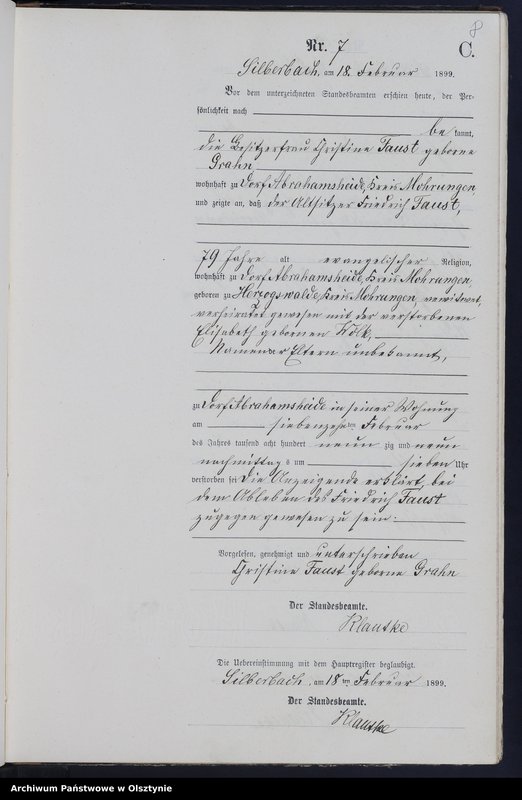 8
Nr. 7
C.
Silberbach, am 18. Februar 1899.
Vor dem unterzeichneten Standesbeamten erschien heute, der Per-
sönlichkeit nach
be kannt,
die Besitzerfrau Christine Faust geborne
Grahn
wohnhaft zu Dorf Abrahamsheide, Kreis Mohrungen
und zeigte an, daß der Altsitzer Friedrich Faust,
79 Jahre alt evangelischer Religion,
wohnhaft zu Dorf Abrahamsheide, Kreis Mohrungen,
geboren zu Herzogswalde, Kreis Mohrungen, verwittwet,
verheiratet gewesen mit der verstorbenen
Elisabeth gebornen Kolk,
Namen der Eltern unbekannt,
zu Dorf Abrahamsheide in seiner Wohnung
am siebenzehnten Februar
des Jahres tausend acht hundert neun zig und neun
nachmittag s um sieben Uhr
verstorben sei Die Anzeigende erklärt, bei
dem Ableben des Friedrich Faust
zugegen gewesen zu sein.
Vorgelesen, genehmigt und unterschrieben
Christine Faust geborne Grahn
Der Standesbeamte.
Klautke
Die Uebereinstimmung mit dem Hauptregister beglaubigt.
Silberbach, am 18ten Februar 1899.
Der Standesbeamte.
Klautke
Archiwum Państwowe w Olsztynie